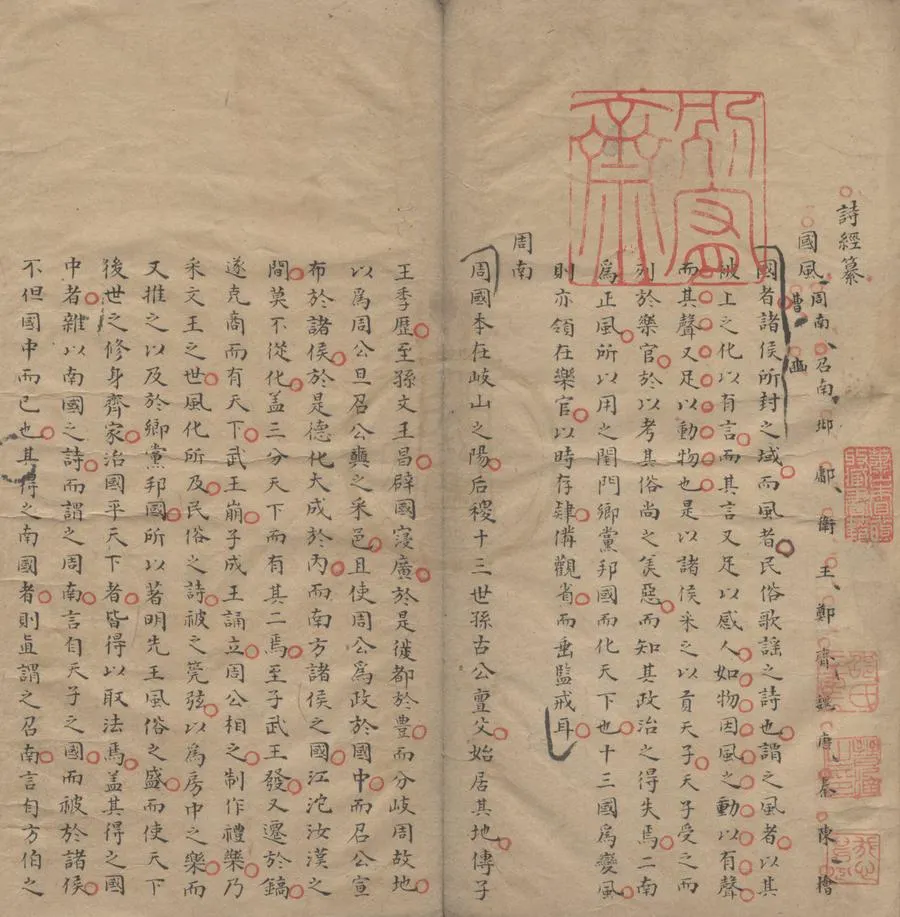 詩經纂
國風 周南 召南 邶 鄘 衛 王 鄭 齊 魏 唐 秦 陳 檜
曹 豳
國者諸侯所封之域而風者民俗歌謠之詩也謂之風者以其
被上之化以有言而其言又足以感人如物因風之動以有聲
而其聲又足以動物也是以諸侯采之以貢天子天子受之而
列於樂官於以考其俗尚之美惡而知其政治之得失焉二南
為正風所以用之閨門鄉黨邦國而化天下也十三國為變風
則亦領在樂官以時存肄備觀省而垂監戒耳
周南
周國本在岐山之陽后稷十三世孫古公亶父始居其地傳子
王季歷至孫文王昌辟國寖廣於是徙都於豊而分岐周故地
以為周公旦召公奭之采邑且使周公為政於國中而召公宣
布於諸侯於是德化大成於內而南方諸侯之國江沱汝漢之
間莫不從化盖三分天下而有其二焉至子武王發又遷於鎬
遂克商而有天下武王崩子成王誦立周公相之制作禮樂乃
采文王之世風化所及民俗之詩被之筦弦以為房中之樂而
又推之以及於鄉黨邦國所以著明先王風俗之盛而使天下
後世之修身齊家治國平天下者皆得以取法焉盖其得之國
中者雜以南國之詩而謂之周南言自天子之國而被於諸侯
不但國中而已也其得之南國者則直謂之召南言自方伯之